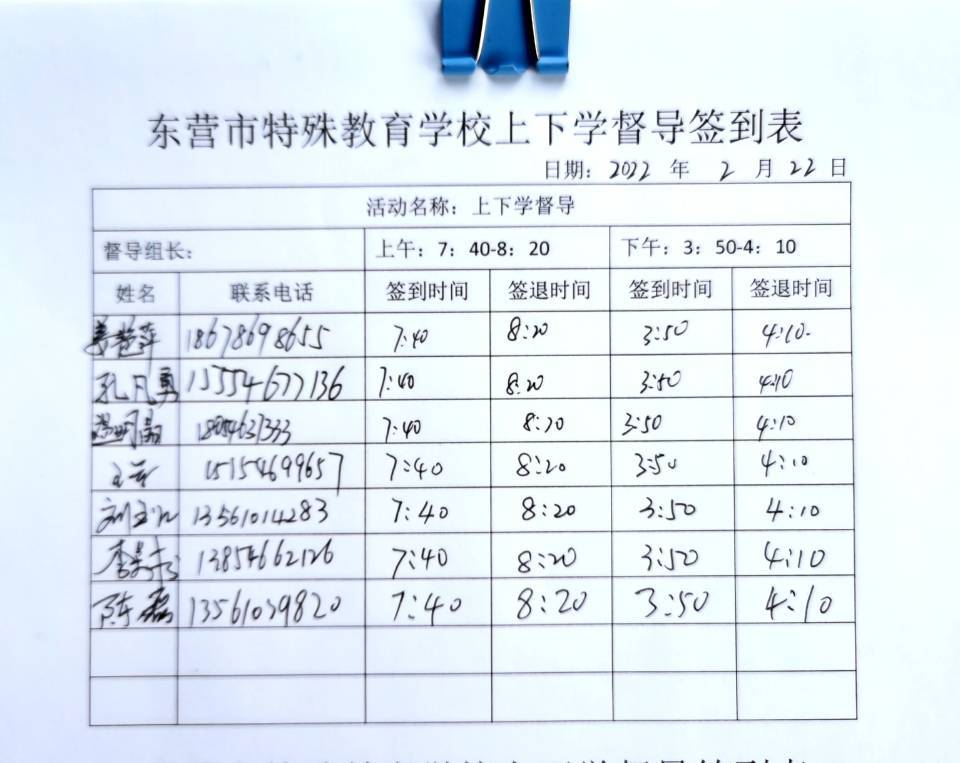 东营市特殊教育学校上下学督导签到表
日期：2022 年 2 月 22 日
活动名称：上下学督导
督导组长： 上午：7：40-8：20 下午：3：50-4：10
姓名 联系电话 签到时间 签退时间 签到时间 签退时间
18678698655 7:40 8:20 3:50 4:10
孔凡勇 15554677136 7:40 8:20 3:50 4:10
7:40 8:20 3:50 4:10
15154699657 7:40 8:20 3:50 4:10
13561014283 7:40 8:20 3:50 4:10
13854662126 7:40 8:20 3:50 4:10
陈磊 13561039820 7:40 8:20 3:50 4:10